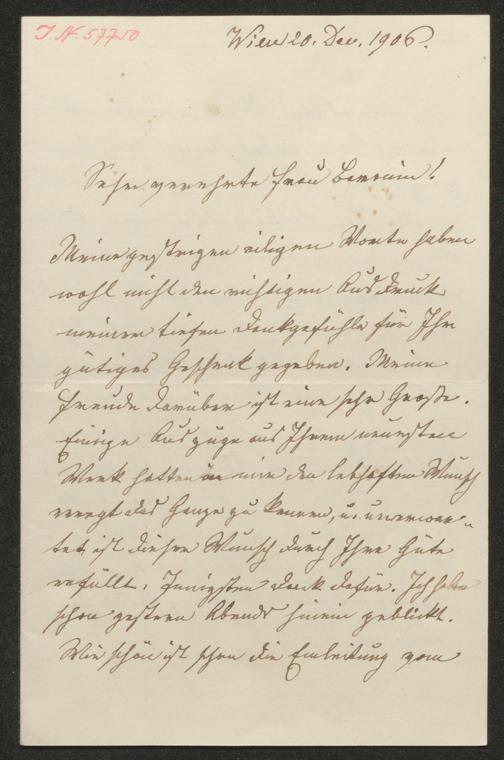 J. N. 57750
Wien 20. Dec. 1906.
Sehr verehrte Frau Baronin!
Meine gestrigen eiligen Worte haben
wohl nicht den richtigen Ausdruck
meiner tiefen Dankgefühle für Ihr
gütiges Geschenk gegeben. Meine
Freude darüber ist eine sehr Große.
Einige Auszüge aus Ihrem neuesten
Werk hatten in mir den lebhaften Wunsch
erregt das Ganze zu kennen, u. unerwar-
tet ist dieser Wunsch durch Ihre Güte
erfüllt. Innigsten Dank dafür. Ich habe
schon gestern Abends hinein geblickt.
Wie schön ist schon die Einleitung vom